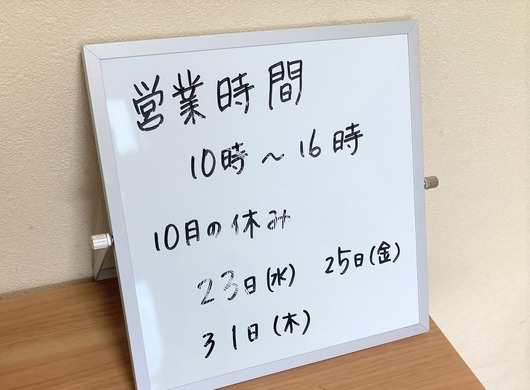 営業時間
10時～16時
10月の休み
23日(水) 25日(金)
31日(木)